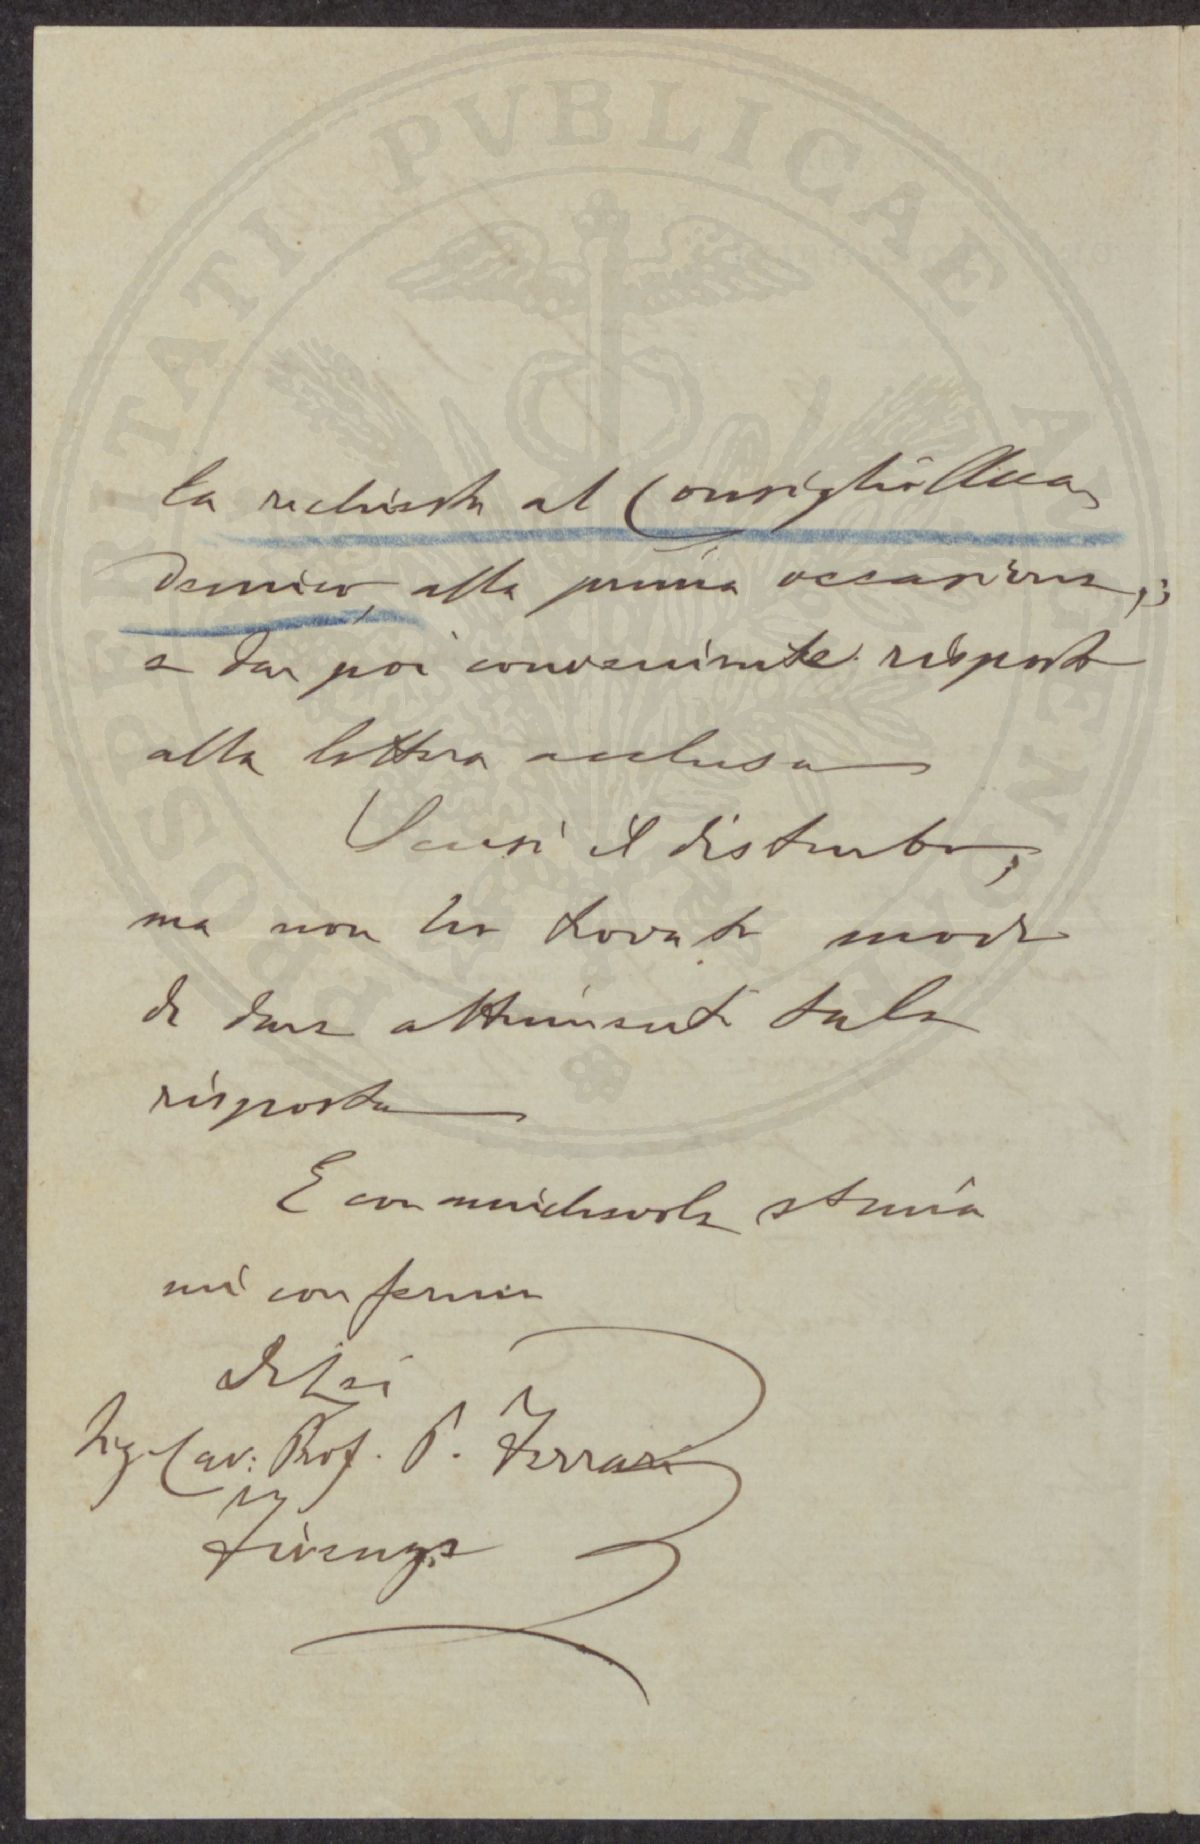 la richiesta al Consiglio Acca
demico, alla prima occasione,;
e dar poi conveniente risposta
alla lettera acclusa
Scusi il disturbo,
ma non ho trovato modo
di dare altrimenti tale
risposta
E con amichevole stima
mi confermo
di Lei
Sig. Cav: Prof. P. Ferrari
Firenze
PROSPERITATI PVBLICAE AVGENDAE